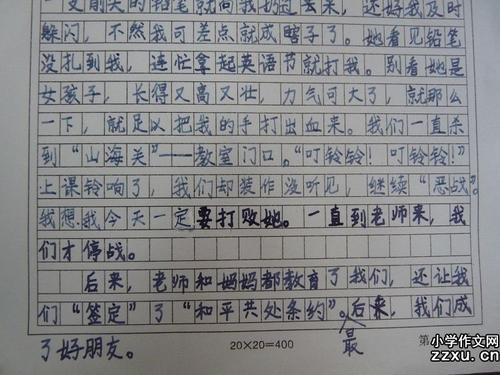 一支削尖的铅笔就向我扔过来，还好我及时
躲闪，不然我可差点就成瞎子了。她看见铅笔
没扎到我，连忙拿起英语书就打我。别看她是
女孩子，长得又高又壮，力气可大了，就那么
一下，就足以把我的手打出血来。我们一直杀
到“山海关”——教室门口。“叮铃铃！叮铃铃！”
上课铃响了，我们却装作没听见，继续“恶战”。
我想，我今天一定要打败她。一直到老师来，我
们才停战。
后来，老师和妈妈都教育了我们，还让我
们“签定”了“和平共处条约”。后来，我们成
最
了好朋友。
20×20=400
第
小学作文网
zzxu.cn